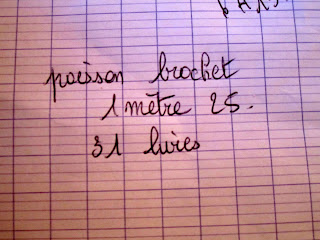 poisson brochet
1 mètre 25.
31 livres